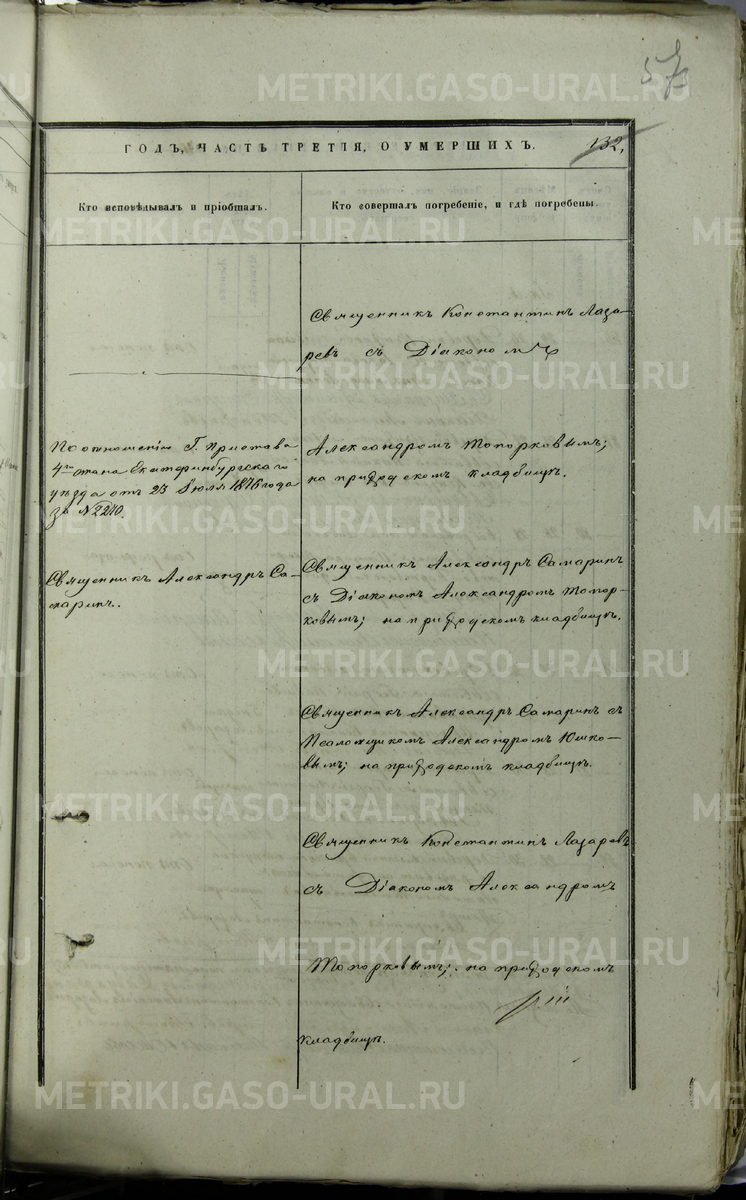 573
ГОДЪ, ЧАСТЬ ТРЕТІЯ, О УМЕРШИХЪ.
132,
Кто исповѣдывалъ и пріобщалъ.
Кто совершалъ погребеніе, и гдѣ погребены.
Священникъ Константинъ Лаза-
ревъ съ Діакономъ
По отношенію Г. Пристава
4го стана Екатеринбургскаго
уѣзда отъ 23 Іюля 1876 года
за № 2210.
Александромъ Топорковымъ;
на приходскомъ кладбищѣ.
Священникъ Александръ Са-
маринъ.
Священникъ Александръ Самаринъ
съ Діакономъ Александромъ Топор-
ковымъ; на приходскомъ кладбищѣ.
Священникъ Александръ Самаринъ съ
Псаломщикомъ Александромъ Юшко-
вымъ; на приходскомъ кладбищѣ.
Священникъ Константинъ Лазаревъ
съ Діакономъ Александромъ
Топорковымъ; на приходскомъ
кладбищѣ.
METRIKI.GASO-URAL.RU